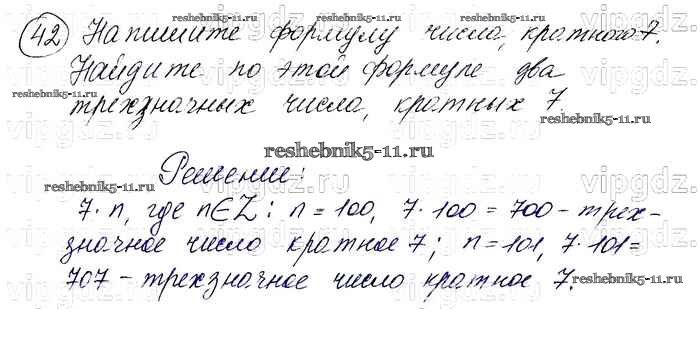 reshebnik5-11.ru reshebnik5-11.ru
42 Напишите формулу числа, кратного 7.
Найдите по этой формуле два
трехзначных числа, кратных 7.
vipgdz.ru vipgdz.ru vipgdz.ru
reshebnik5-11.ru
Решение:
reshebnik5-11.ru reshebnik5-11.ru
7·n, где n∈Z: n=100, 7·100=700 - трех-
значное число кратное 7; n=101, 7·101=
707 - трехзначное число кратное 7.
reshebnik5-11.ru reshebnik5-11.ru